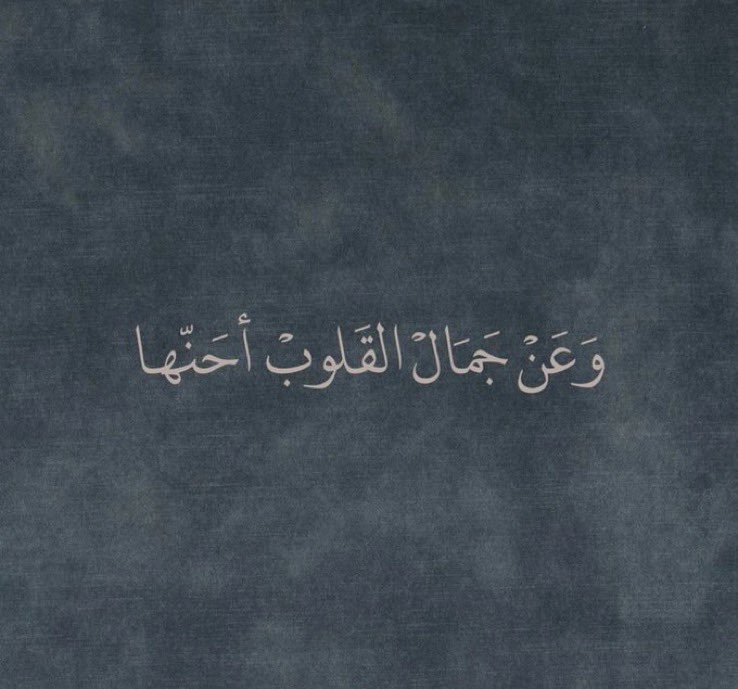 وَعَنْ جَمَالْ القَلوبْ أحَنّها